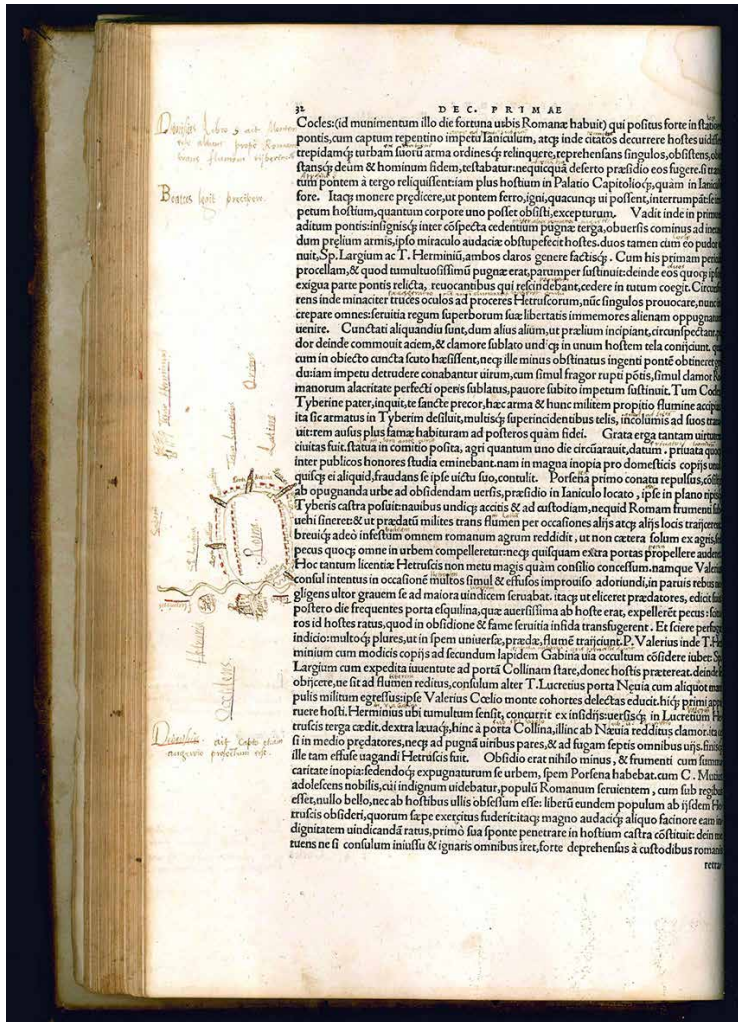 32
DEC. PRIMAE
Cocles:(id munimentum illo die fortuna urbis Romanæ habuit) qui positus forte in statione
pontis,cum captum repentino impetu Ianiculum, atq; inde citatos decurrere hostes uidiss
trepidamq; turbam suorũ arma ordinesq; relinquere, reprehensans singulos, obsistens, ob
stansq; deûm & hominum fidem,testabatur:nequicquã deserto præsidio eos fugere.si tran
tum pontem à tergo reliquissent:iam plus hostium in Palatio Capitolioq;,quàm in Ianicul
fore. Itaq; monere prędicere,ut pontem ferro,igni,quacunq; ui possent,interrumpãt:se im
petum hostium,quantum corpore uno posset obsisti,excepturum. Vadit inde in primum
aditum pontis:insignisq; inter cõspecta cedentium pugnæ terga,obuersis cominus ad ineun
dum prelium armis,ipso miraculo audaciæ obstupefecit hostes.duos tamen cum eo pudor te
nuit,Sp.Largium ac T.Herminiũ,ambos claros genere factisq;. Cum his primam periculi
procellam,& quod tumultuosissimũ pugnæ erat,parumper sustinuit:deinde eos quoq; ipsos
exigua parte pontis relicta, reuocantibus qui rescindebant,cedere in tutum coegit. Circunfe
rens inde minaciter truces oculos ad proceres Hetruscorum,nũc singulos prouocare,nunc in
crepare omnes:seruitia regum superborum suæ libertatis immemores alienam oppugnatum
uenire. Cunctati aliquandiu sunt,dum alius alium,ut prælium incipiant,circunspectant.pu
dor deinde commouit aciem,& clamore sublato undiq; in unum hostem tela conijciunt. quæ
cum in obiecto cuncta scuto hæsissent,neq; ille minus obstinatus ingenti pontẽ obtineret gra
du:iam impetu detrudere conabantur uirum,cum simul fragor rupti põtis,simul clamor Ro
manorum alacritate perfecti operis sublatus,pauore subito impetum sustinuit. Tum Cocles
Tyberine pater,inquit,te sancte precor,hæc arma & hunc militem propitio flumine accipias
ita sic armatus in Tyberim desiluit,multisq; superincidentibus telis, incolumis ad suos tran
uit:rem ausus plus famæ habituram ad posteros quàm fidei. Grata erga tantam uirtutem
ciuitas fuit.statua in comitio posita, agri quantum uno die circũarauit,datum. priuata quoq;
inter publicos honores studia eminebant.nam in magna inopia pro domesticis copijs unus
quisq; ei aliquid,fraudans se ipse uictu suo,contulit. Porsena primo conatu repulsus,cõsilijs
ab oppugnanda urbe ad obsidendam uersis,præsidio in Ianiculo locato, ipse in plano ripisq;
Tyberis castra posuit:nauibus undiq; accitis & ad custodiam,nequid Romam frumenti sub
uehi sineret:& ut prædatũ milites trans flumen per occasiones alijs atq; alijs locis traijceret.
breuiq; adeò infestum omnem romanum agrum reddidit, ut non cætera solum ex agris,sed
pecus quoq; omne in urbem compelleretur:neq; quisquam extra portas propellere auderet.
Hoc tantum licentiæ Hetruscis non metu magis quàm consilio concessum.namque Valerius
consul intentus in occasionẽ multos simul & effusos improuiso adoriundi,in paruis rebus ne
gligens ultor grauem se ad maiora uindicem seruabat. itaq; ut eliceret prædatores, edicit suis
postero die frequentes porta esquilina,quæ auersissima ab hoste erat, expellerẽt pecus:scitu
ros id hostes ratus,quod in obsidione & fame seruitia infida transfugerent. Et sciere perfugæ
indicio:multoq; plures,ut in spem uniuersæ,prædæ,flumẽ traijciunt.P. Valerius inde T.Her
minium cum modicis copijs ad secundum lapidem Gabina uia occultum cõsidere iubet: Sp.
Largium cum expedita iuuentute ad portã Collinam stare,donec hostis prætereat.deinde se
obijcere,ne sit ad flumen reditus,consulum alter T.Lucretius porta Neuia cum aliquot mani
pulis militum egressus:ipse Valerius Cœlio monte cohortes delectas educit.hiq; primi appa
ruere hosti.Herminius ubi tumultum sensit, concurrit ex insidijs:uersisq; in Lucretium He
truscis terga cædit.dextra læuaq;,hinc à porta Collina,illinc ab Næuia redditus clamor.ita cæ
si in medio prędatores,neq; ad pugnã uiribus pares,& ad fugam septis omnibus uijs.finisq;
ille tam effuse uagandi Hetruscis fuit. Obsidio erat nihilo minus, & frumenti cum summa
caritate inopia:sedendoq; expugnaturum se urbem, spem Porsena habebat.cum C. Mutius
adolescens nobilis,cui indignum uidebatur,populũ Romanum seruientem, cum sub regibus
esset,nullo bello,nec ab hostibus ullis obsessum esse: liberũ eundem populum ab ijsdem He
truscis obsideri,quorum sæpe exercitus fuderit:itaq; magno audaciq; aliquo facinore eam in
dignitatem uindicandã ratus,primò sua sponte penetrare in hostium castra cõstituit: dein me
tuens ne si consulum iniussu & ignaris omnibus iret,forte deprehensus à custodibus romanis
retra
Dionysius Libro 5 ait
trans flumen tiberim
Beatus legit precipere.
Titus Herminius
Titus Lucretius
Oriens
Latium
Roma
Hetruria
Occidens
Dionysius ait